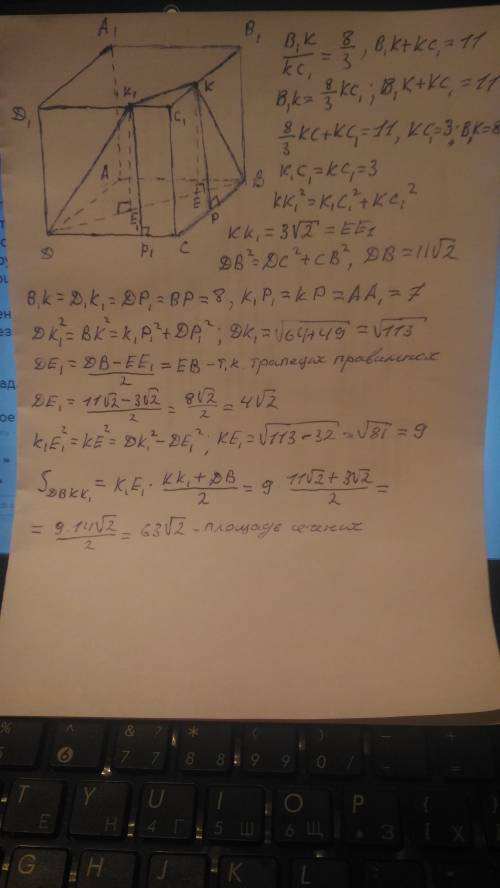 A₁
B₁
D₁
K₁
K
C₁
A
B
E
E₁
P
D
P₁
C
B₁K/KC₁ = 8/3, B₁K+KC₁=11
B₁K = 8/3 KC₁; B₁K+KC₁=11
8/3 KC+KC₁=11, KC₁=3; B₁K=8
K₁C₁=KC₁=3
KK₁²=K₁C₁²+KC₁²
KK₁=3√2=EE₁
DB²=DC²+CB², DB=11√2
B₁K=D₁K₁=DP₁=BP=8, K₁P₁=KP=AA₁=7
DK₁²=BK²=K₁P₁²+DP₁²; DK₁=√64+49=√113
DE₁=(DB-EE₁)/2=EB-т.к. трапеция
DE₁=(11√2-3√2)/2=8√2/2=4√2
K₁E₁²=KE²=DK₁²-DE₁²; KE₁=√113-32=√81=9
S DBKK₁=K₁E₁·(KK₁+DB)/2=9·(11√2+3√2)/2=
=9·14√2/2=63√2-площадь сечения
% 5
^ 6
& 7 7
* 8 8
( 9 9
) 0
- _
+ =
T Е
Y Н
U 4 Г
I 5 Ш
O 6 Щ
P * З
{ [ Х
G
H
J
K
L